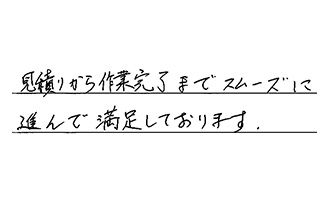 見積りから作業完了までスムーズに
進んで満足しております.